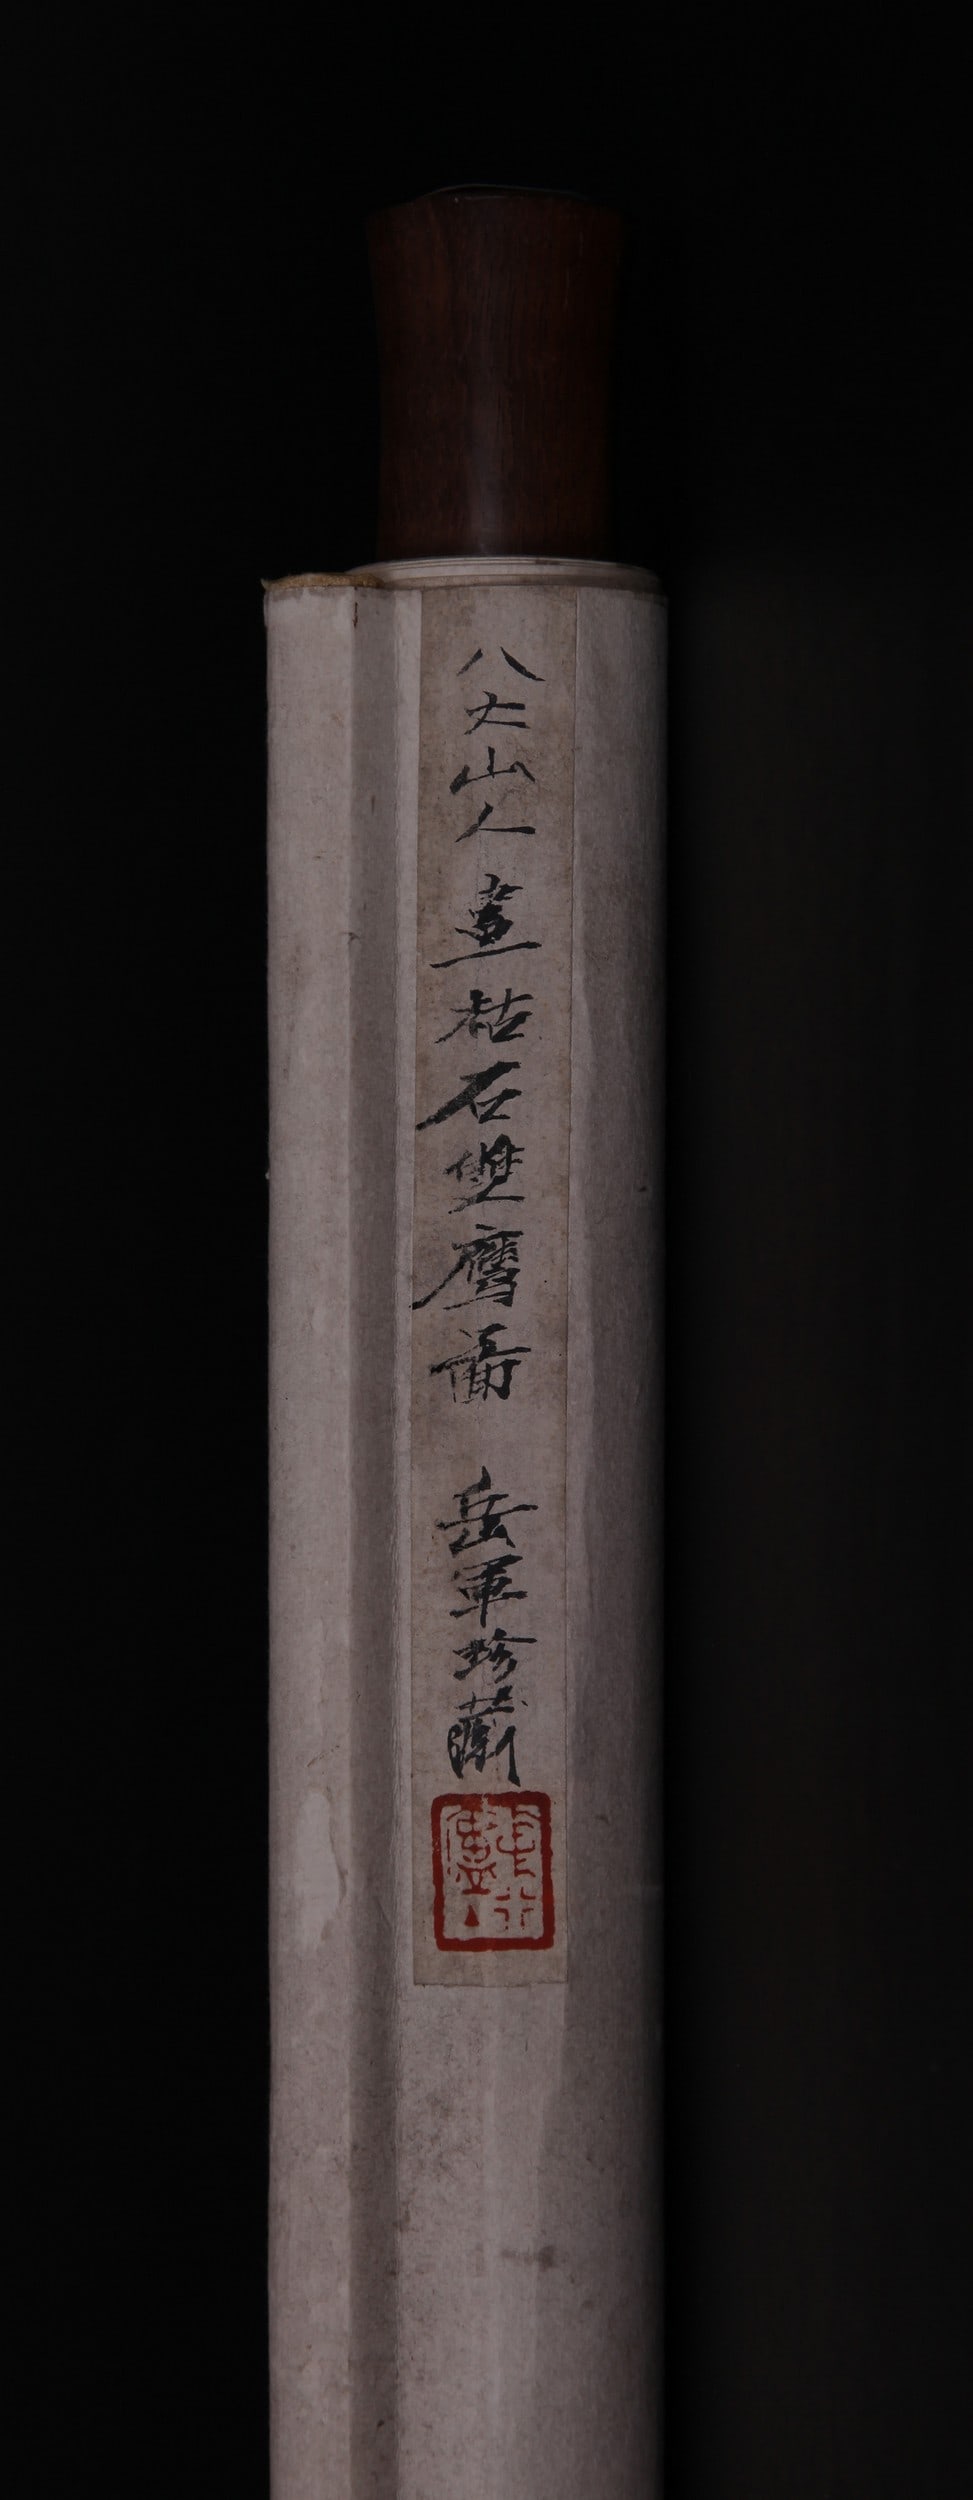 八大山人畫枯石雙鷹圖 岳軍珍藏